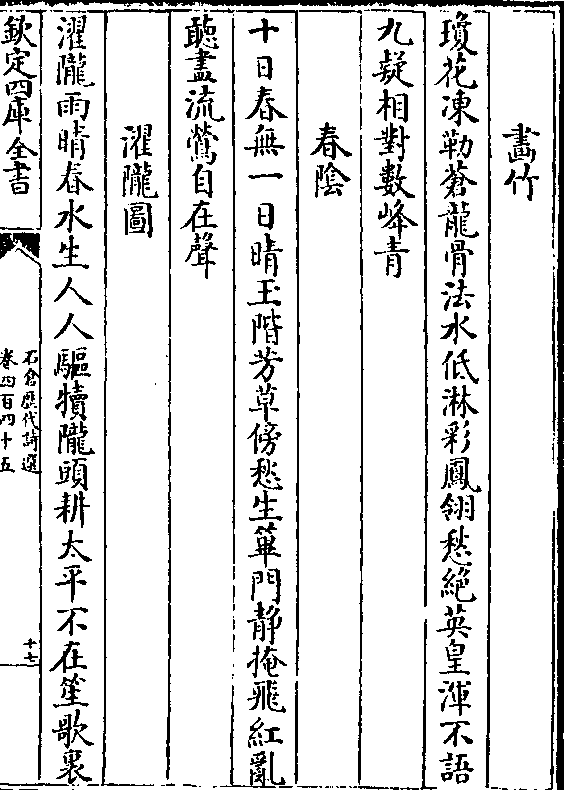 畫竹
瓊花凍勒蒼龍骨法水低淋彩鳳翎愁絕英皇渾不語
九疑相對數峰青
春陰
十日春無一日晴玉階芳草傍愁生篳門静掩飛紅亂
聽盡流鶯自在聲
濯隴圖
濯隴雨晴春水生人人驅犢隴頭耕太平不在笙歌裏
欽定四庫全書
石倉歷代詩選
卷四百四十五
十七